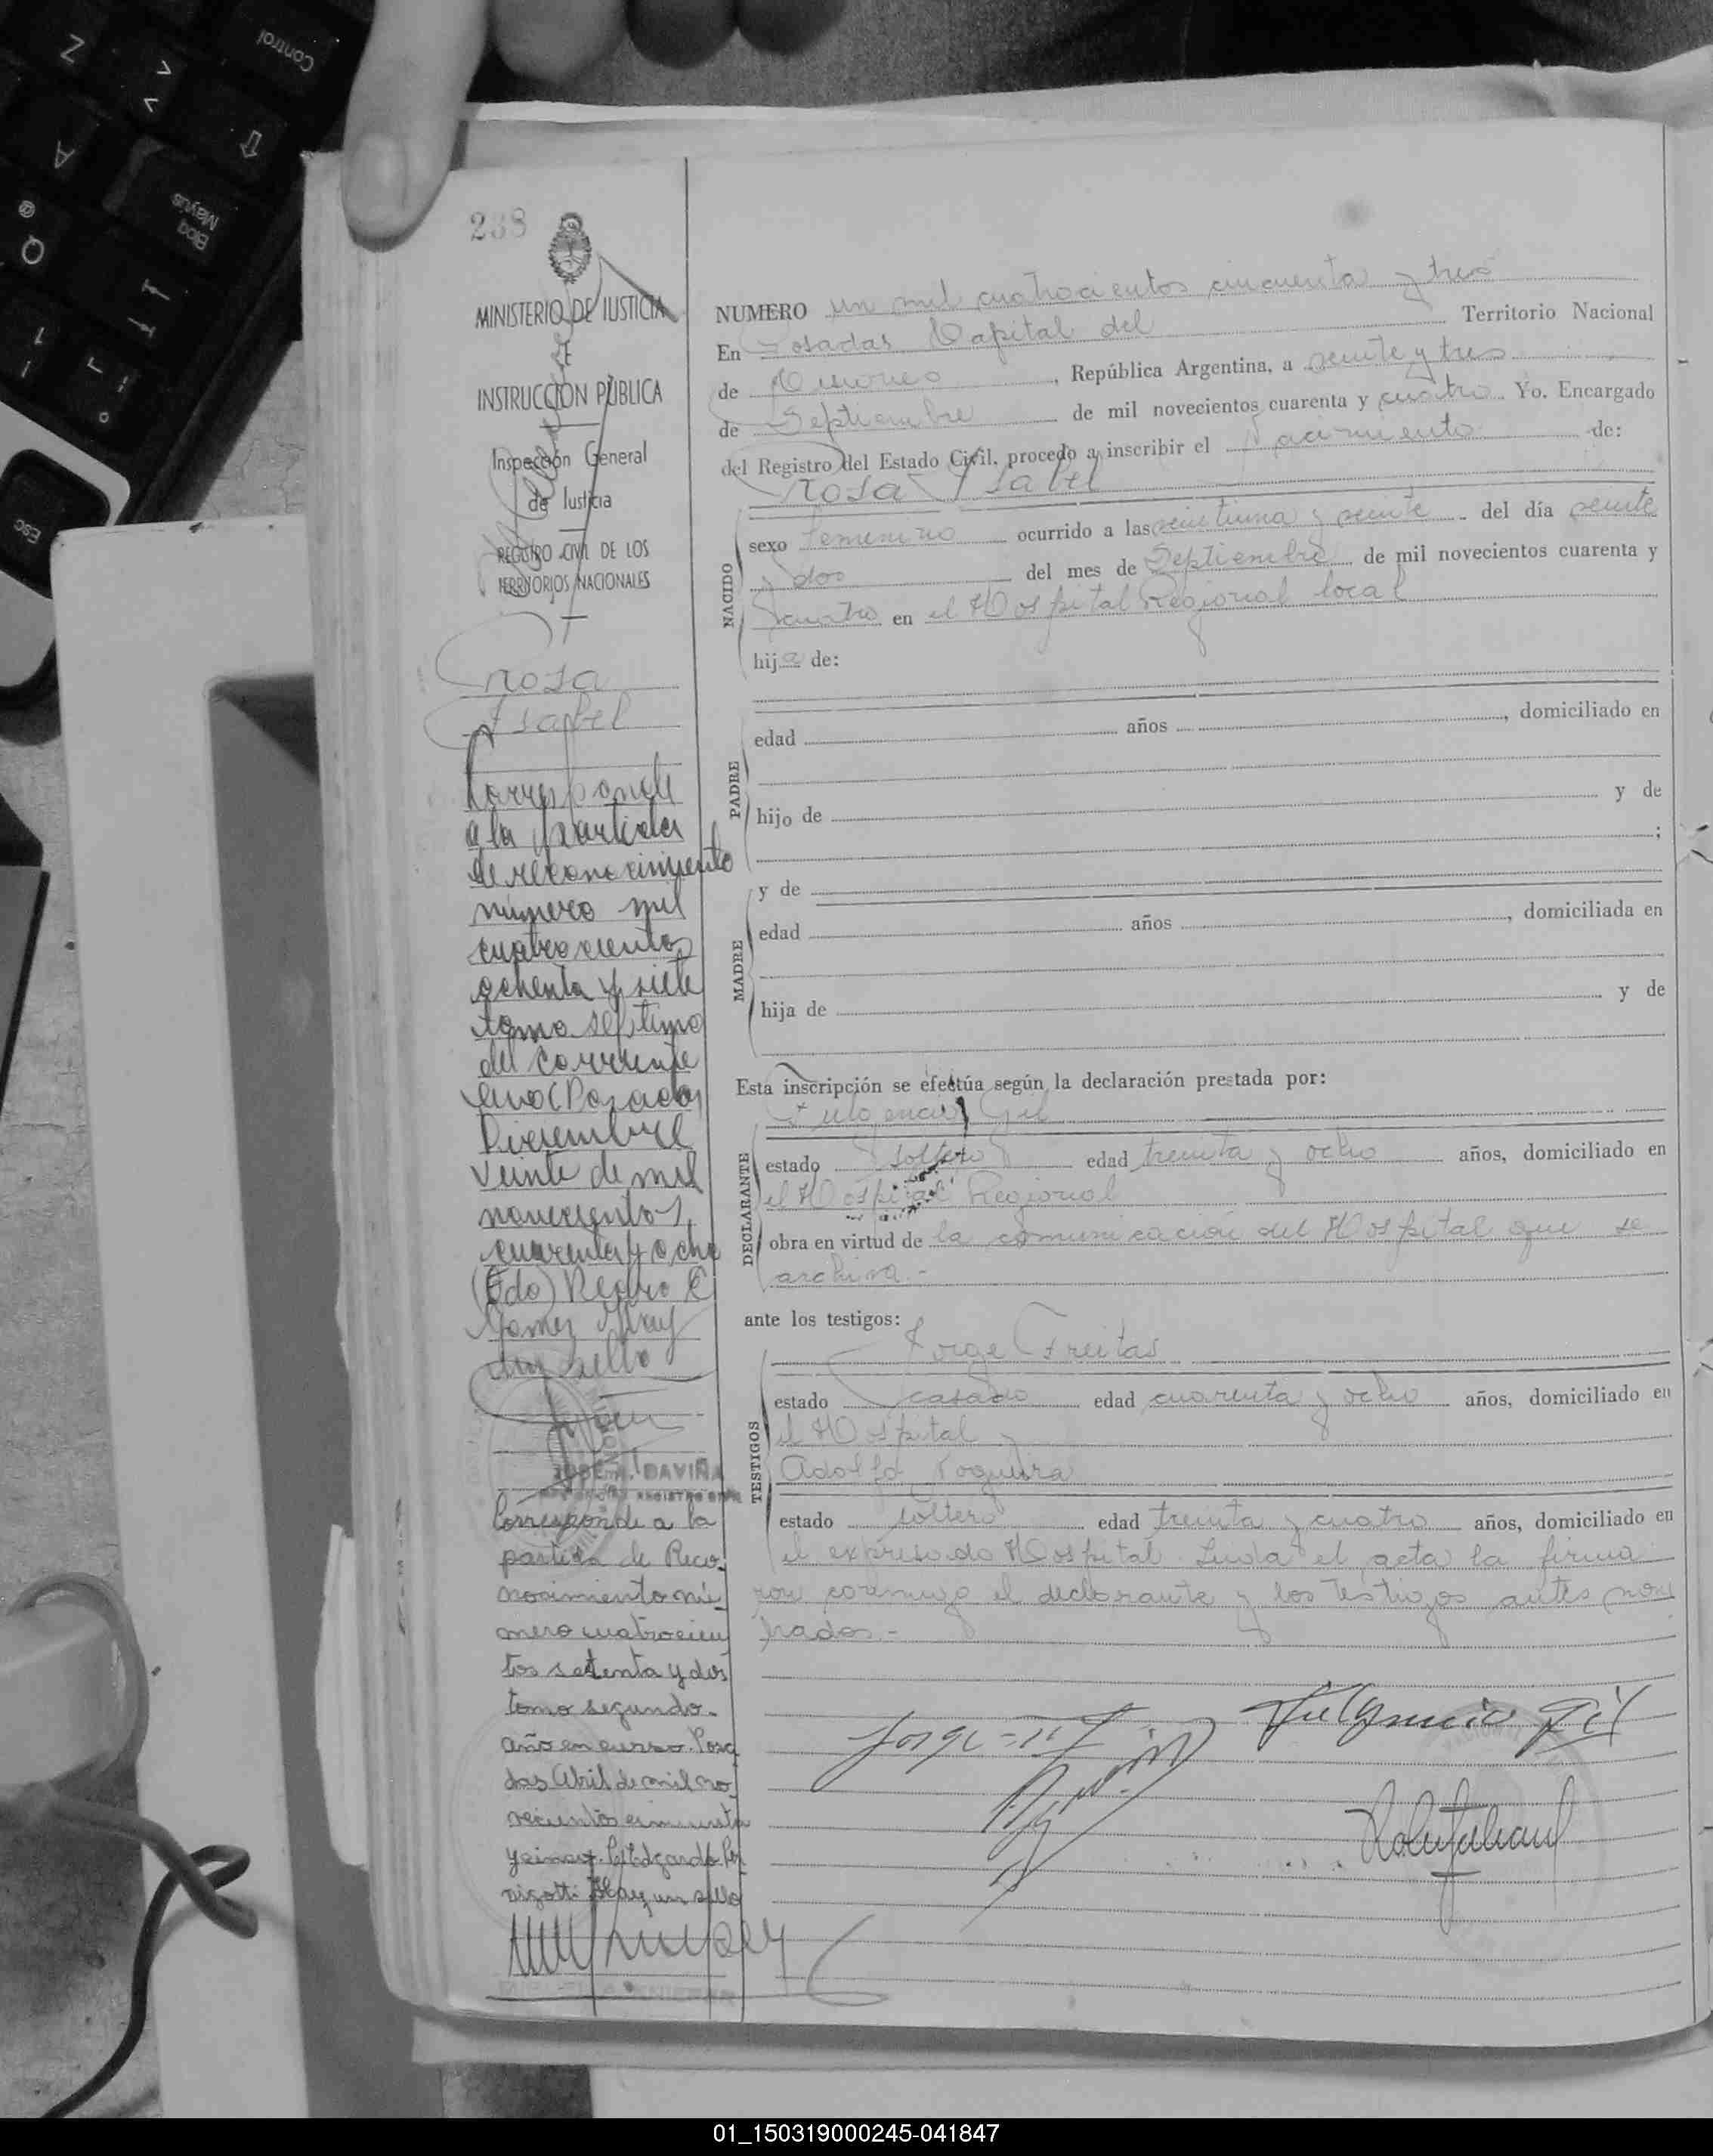 Control
Z
A
Bloq
Mayús
@
Q
1
Esc
238
MINISTERIO DE JUSTICIA
E
INSTRUCCION PUBLICA
Inspección General
de Justicia
REGISTRO CIVIL DE LOS
TERRITORIOS NACIONALES
Rosa
Isabel
Corresponde
a la partida
de reconocimiento
número mil
cuatrocientos
ochenta y siete
tomo séptimo
del corriente
año (Posadas
Diciembre
veinte de mil
novecientos
cuarenta y ocho
(Fdo) Pedro E
Gomez Hay
un sello
JOSE A. DAVIÑA
REGISTRO CIVIL
Corresponde a la
partida de Reco-
nocimiento nú-
mero cuatrocien
tos setenta y dos
tomo segundo.
año en curso. Posa
das Abril de mil no
vecientos cincuenta
y cinco. Edgardo
Hay un sello
NUMERO un mil cuatrocientos cincuenta y tres
En Posadas Capital del Territorio Nacional
de Misiones, República Argentina, a veinte y tres
de Septiembre de mil novecientos cuarenta y cuatro Yo. Encargado
del Registro del Estado Civil, procedo a inscribir el Nacimiento de:
Rosa Isabel
NACIDO
sexo Femenino ocurrido a las veintiuna y veinte del día veinte
y dos del mes de Septiembre de mil novecientos cuarenta y
cuatro en el Hospital Regional local
hija de:
PADRE
edad años , domiciliado en
hijo de y de
;
MADRE
y de
edad años , domiciliada en
hija de y de
Esta inscripción se efectúa según la declaración prestada por:
Fulgencio Gil
DECLARANTE
estado soltero edad treinta y ocho años, domiciliado en
el Hospital Regional
obra en virtud de la comunicación del Hospital que se
archiva.-
ante los testigos:
Jorge Freitas
TESTIGOS
estado casado edad cuarenta y ocho años, domiciliado en
el Hospital y
Adolfo Noguera
estado soltero edad treinta y cuatro años, domiciliado en
el expresado Hospital. Leida el acta la firma
ron conmigo el declarante y los testigos antes nom
brados.-
Jorge
Fulgencio Gil
01_150319000245-041847